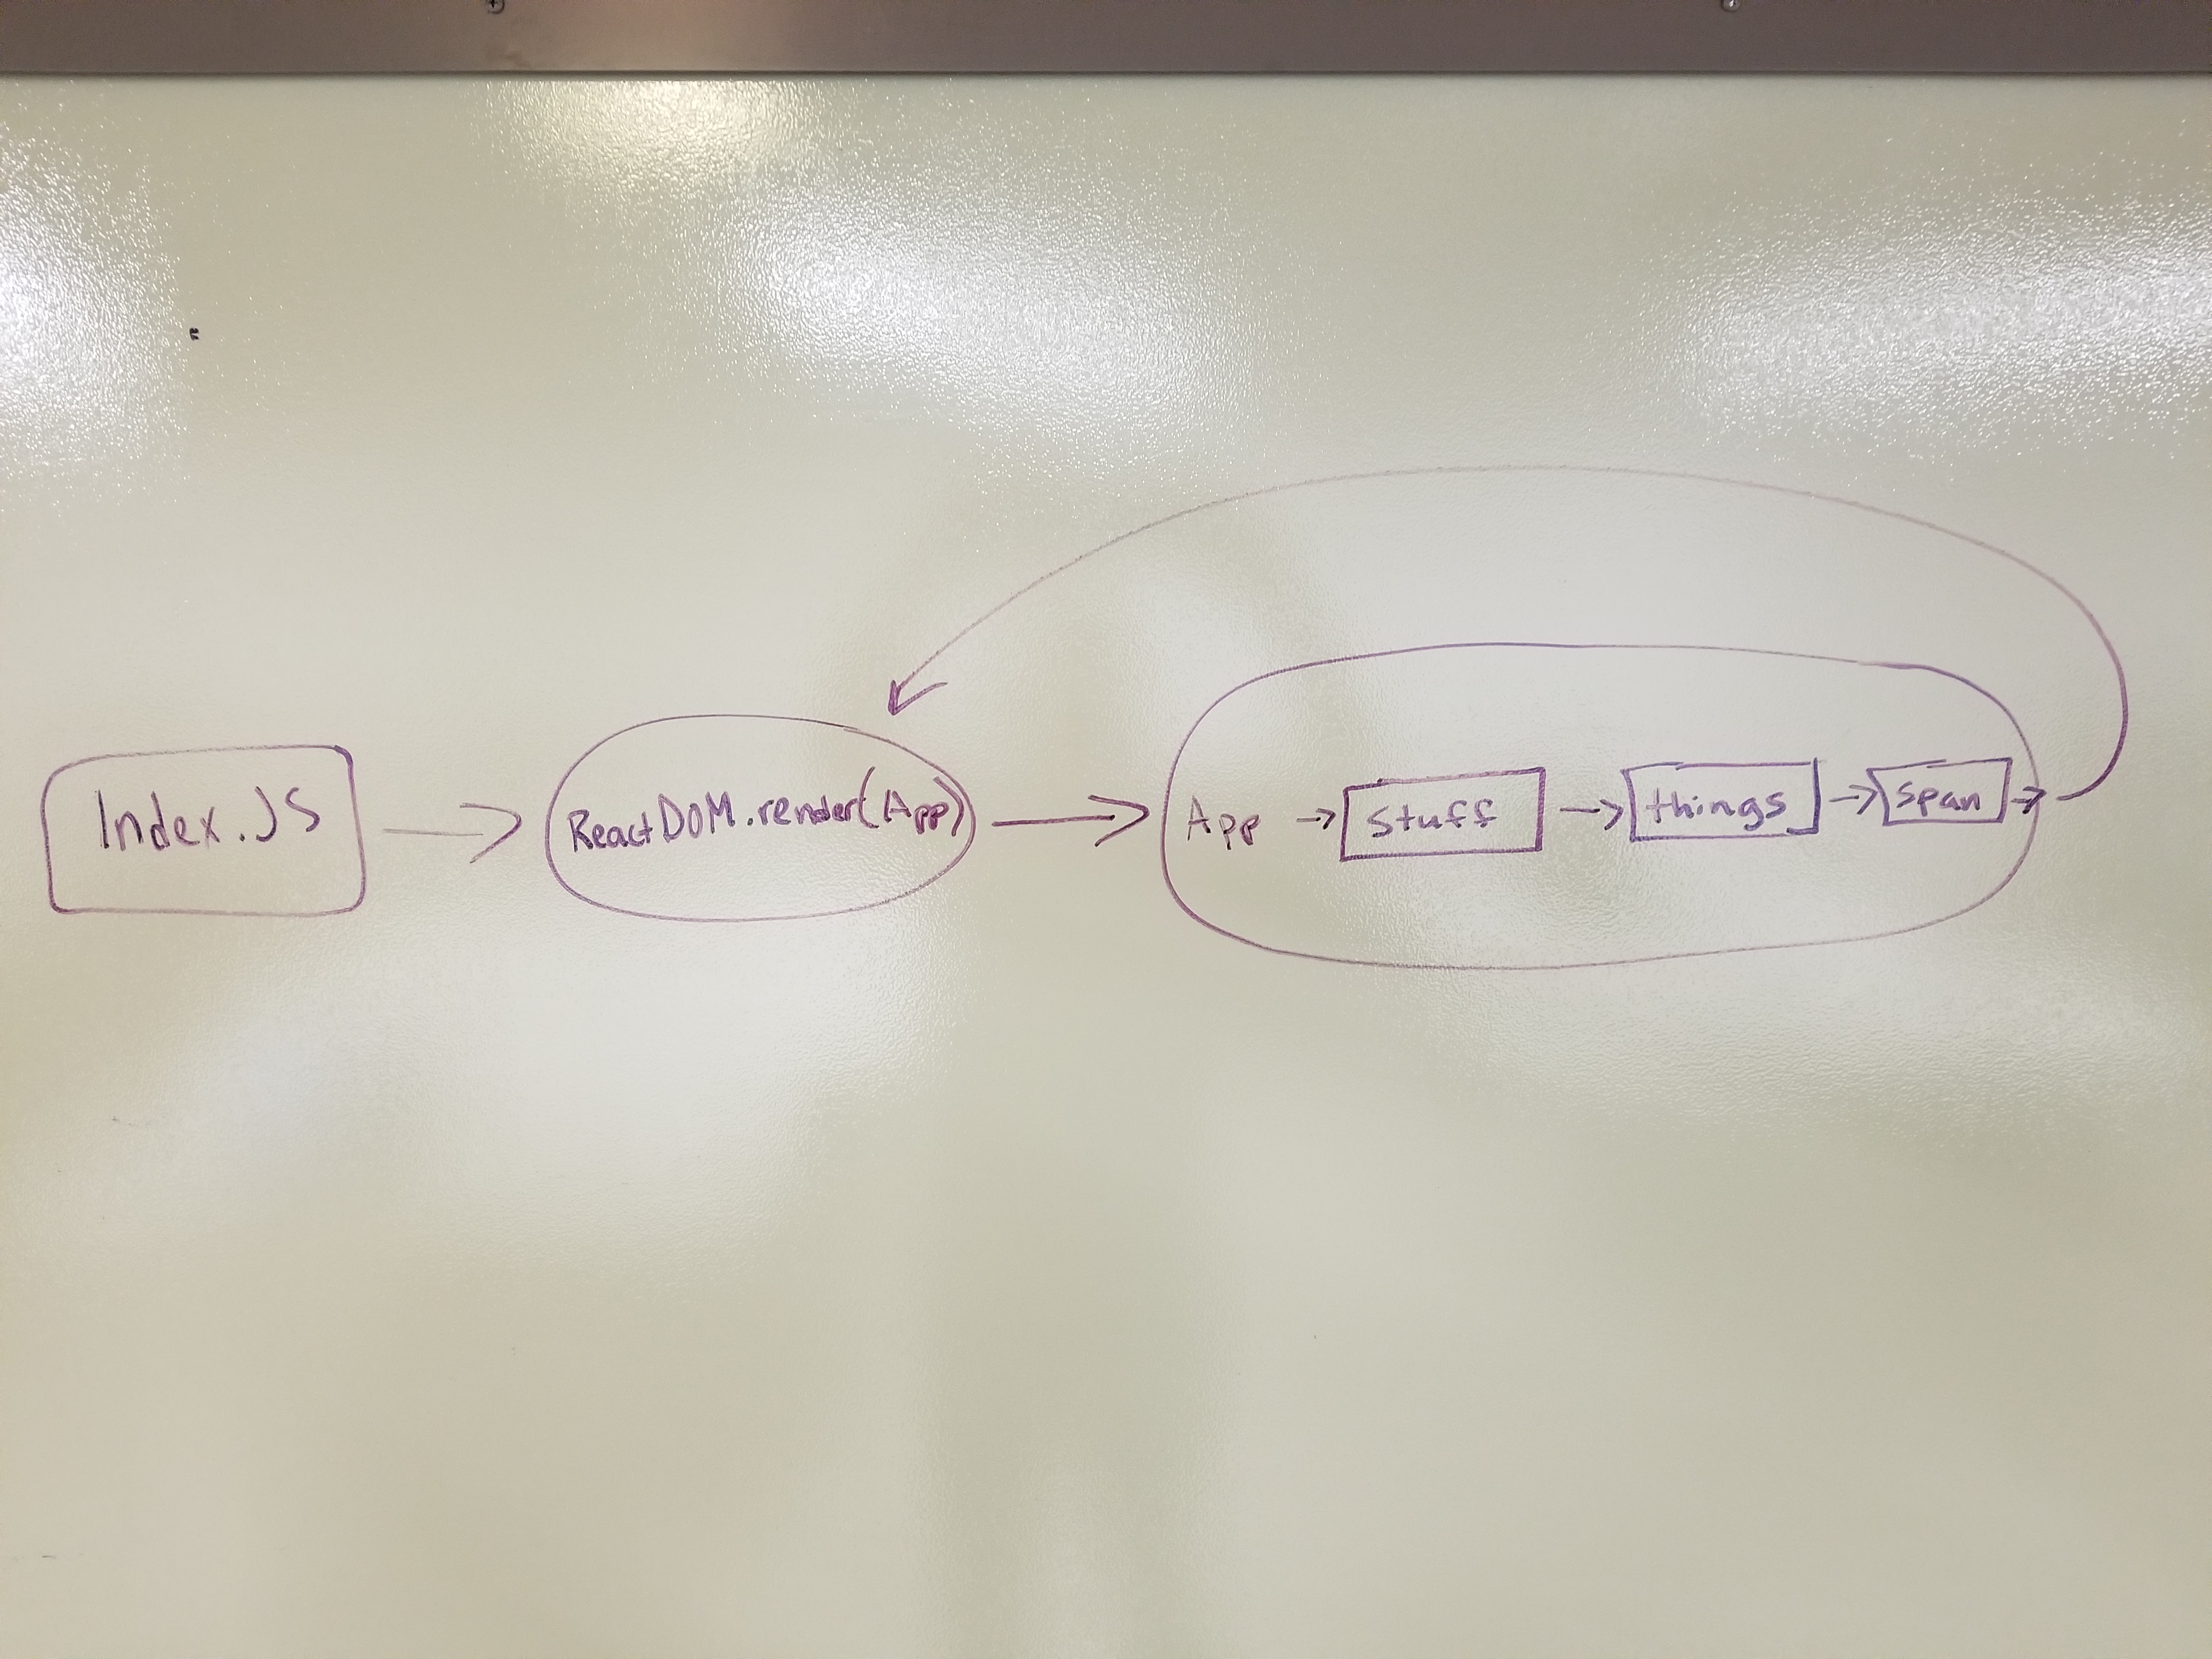 Index.JS
ReactDOM.render(App)
App
stuff
things
span